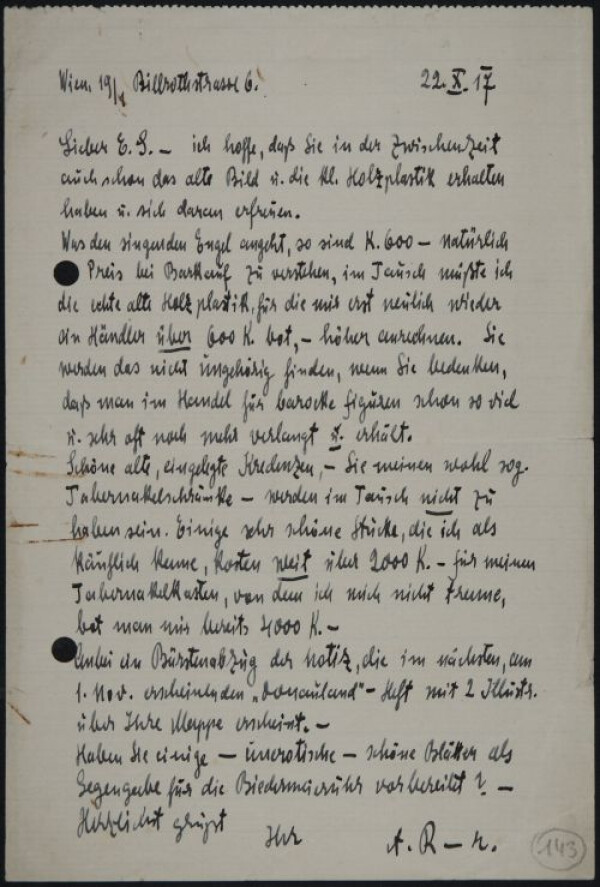 Wien, 19/1 Billrothstrasse 6. 22. X. 17
Lieber E. S. – ich hoffe, daß Sie in der Zwischenzeit
auch schon das alte Bild u. die kl. Holzplastik erhalten
haben u. sich daran erfreuen.
Was den singenden Engel angeht, so sind K. 600 – natürlich
Preis bei Barkauf zu verstehen, im Tausch müßte ich
die echte alte Holzplastik, für die mir erst neulich wieder
ein Händler über 600 K. bot, – höher anrechnen. Sie
werden das nicht ungehörig finden, wenn Sie bedenken,
daß man im Handel für barocke Figuren schon so viel
u. sehr oft noch mehr verlangt u. erhält.
Schöne alte, eingelegte Kredenzen, – Sie meinen wohl sog.
Tabernakelschränke – werden im Tausch nicht zu
haben sein. Einige sehr schöne Stücke, die ich als
käuflich kenne, kosten weit über 2000 K. – für meinen
Tabernakelkasten, von dem ich mich nicht trenne,
bot man mir bereits 4000 K. –
Anbei ein Bürstenabzug der Notiz, die im nächsten, am
1. Nov. erscheinenden „Donauland" – Heft mit 2 Illustr.
über Ihre Mappe erscheint. –
Haben Sie einige – unerotische – schöne Blätter als
Gegengabe für die Biedermeieruhr vorbereitet? –
Herzlichst grüßt
Ihr A. R – r.
143